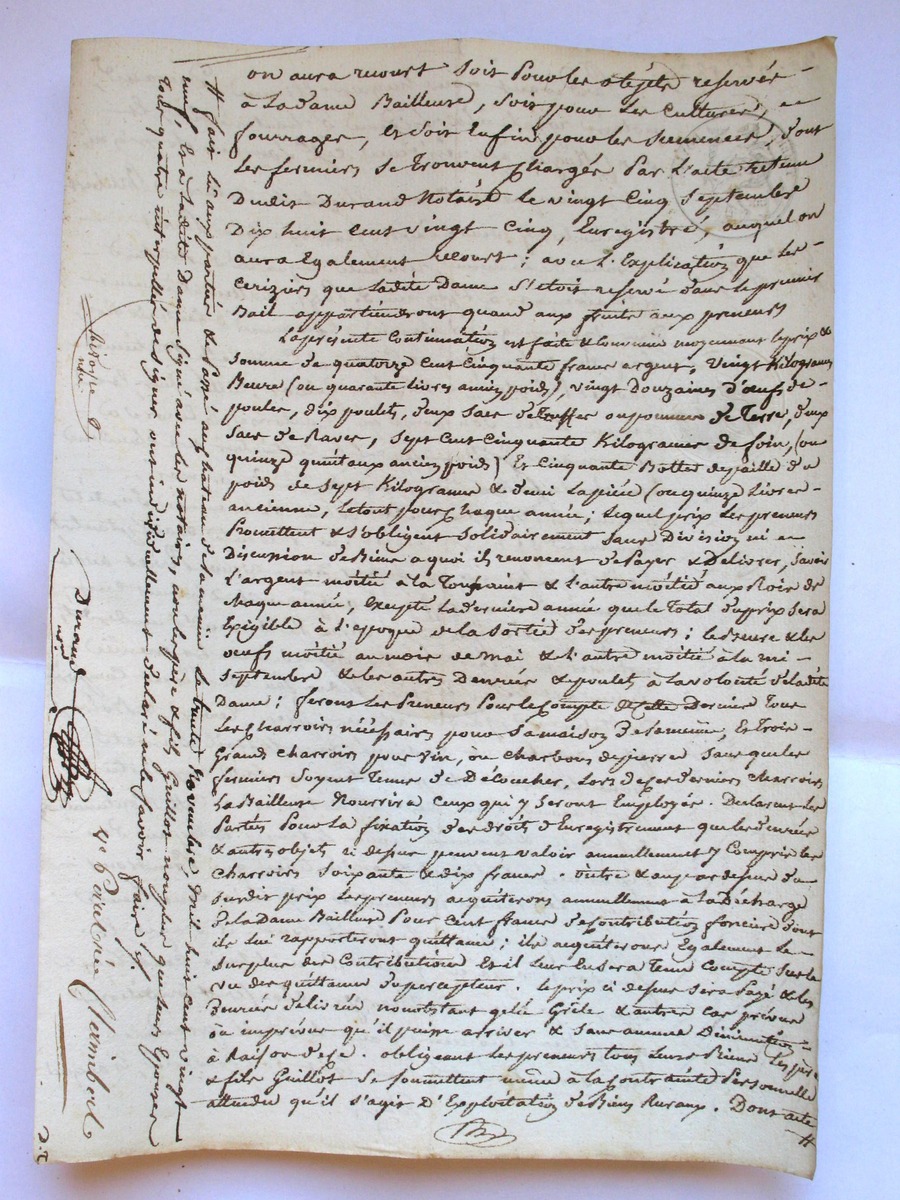 on aura recours soit pour les objets reservés
à la dame Bailleuse, soit pour les cultures, et
fourrages, et soit enfin pour les semences, dont
les fermiers se trouvent chargés par l'acte retenu
Dudit Durand Notaire le vingt cinq septembre
Dix huit cent vingt cinq, Enregistré, auquel on
aura Egalement recours; avec l'Explication que les
cerisiers que ladite Dame s'étoit reservé dans le premier
Bail appartiendront quand aux fruits aux preneurs
La présente Continuation est faite & convenue moyennant le prix &
somme de quatorze cent cinquante francs argent, vingt Kilogrames
Beurre (ou quarante livres ancien poids), vingt Douzaines d'œufs de
poules, dix poulets, deux sacs de truffes ou pommes de Terre, deux
sacs de Raves, sept cent cinquante Kilogrames de foin, (ou
quinze quintaux ancien poids) Et cinquante Bottes de paille du
poids de sept Kilograme & demi la pièce (ou quinze livres
ancienne, le tout pour chaque année; lequel prix les preneurs
Promettent & s'obligent solidairement sans Division ni
Discussion de Biens a quoi ils renoncent de Payer & Délivrer, savoir
L'argent moitié à la Toussaint & l'autre moitié aux Rois de
chaque année, Excepté la dernière année que le total du prix sera
Exigible à l'epoque de la sortie des preneurs; le Beurre & les
œufs moitié au mois de mai & l'autre moitié à la mi-
septembre & les autres Denrées & poulets à la volonté de ladite
Dame; feront les Preneurs Pour le Compte de cette Dernière Tous
les charroirs nécéssaires pour sa maison de Semeine, Et trois
Grands charroirs pour vin, ou charbons de pierre sans que les
fermiers soyent Tenus de Découcher, Lors de ces derniers charroirs
La Bailleuse Nourrira ceux qui y seront Employés. Declarent les
Parties Pour la fixation des droits d'Enregistrement que les denrées
& autres objets ci dessus peuvent valoir annuellement y Compris les
charroirs soixante & dix francs. outre & en par dessus du
susdit prix les preneurs acquiteront annuellement à la Décharge
de la Dame Bailleuse Pour cent francs de contribution foncière dont
ils lui rapporteront quittance; ils acquiteront Egalement le
surplus des Contributions Et il leur en sera Tenu Compte sur le
vu des quittances du percepteur. Le prix ci dessus sera Payé & les
Denrées délivrées nonobstant gelée Grêle & autres cas prévus
ou imprévus qu'il puisse arriver & sans aucune Diminution
à Raison d'ce. obligeant les preneurs tous leurs Biens les père
& fils Guillot se soumettent même à la Contrainte Personnelle
attendu qu'il s'agit d'Exploitation de Biens Ruraux. Dont acte
#
# fait lu aux parties & Passé au château de Semeine Le trente Novembre mil huit cent vingt
neuf, Et a ladite Dame signé avec les notaires, non les père & fils Guillot non plus que leurs Epouses
Tous quatre interpellés de signer ont individuellement declaré ne le savoir faire
Durand
nre.
Ve
Chambert
D.C